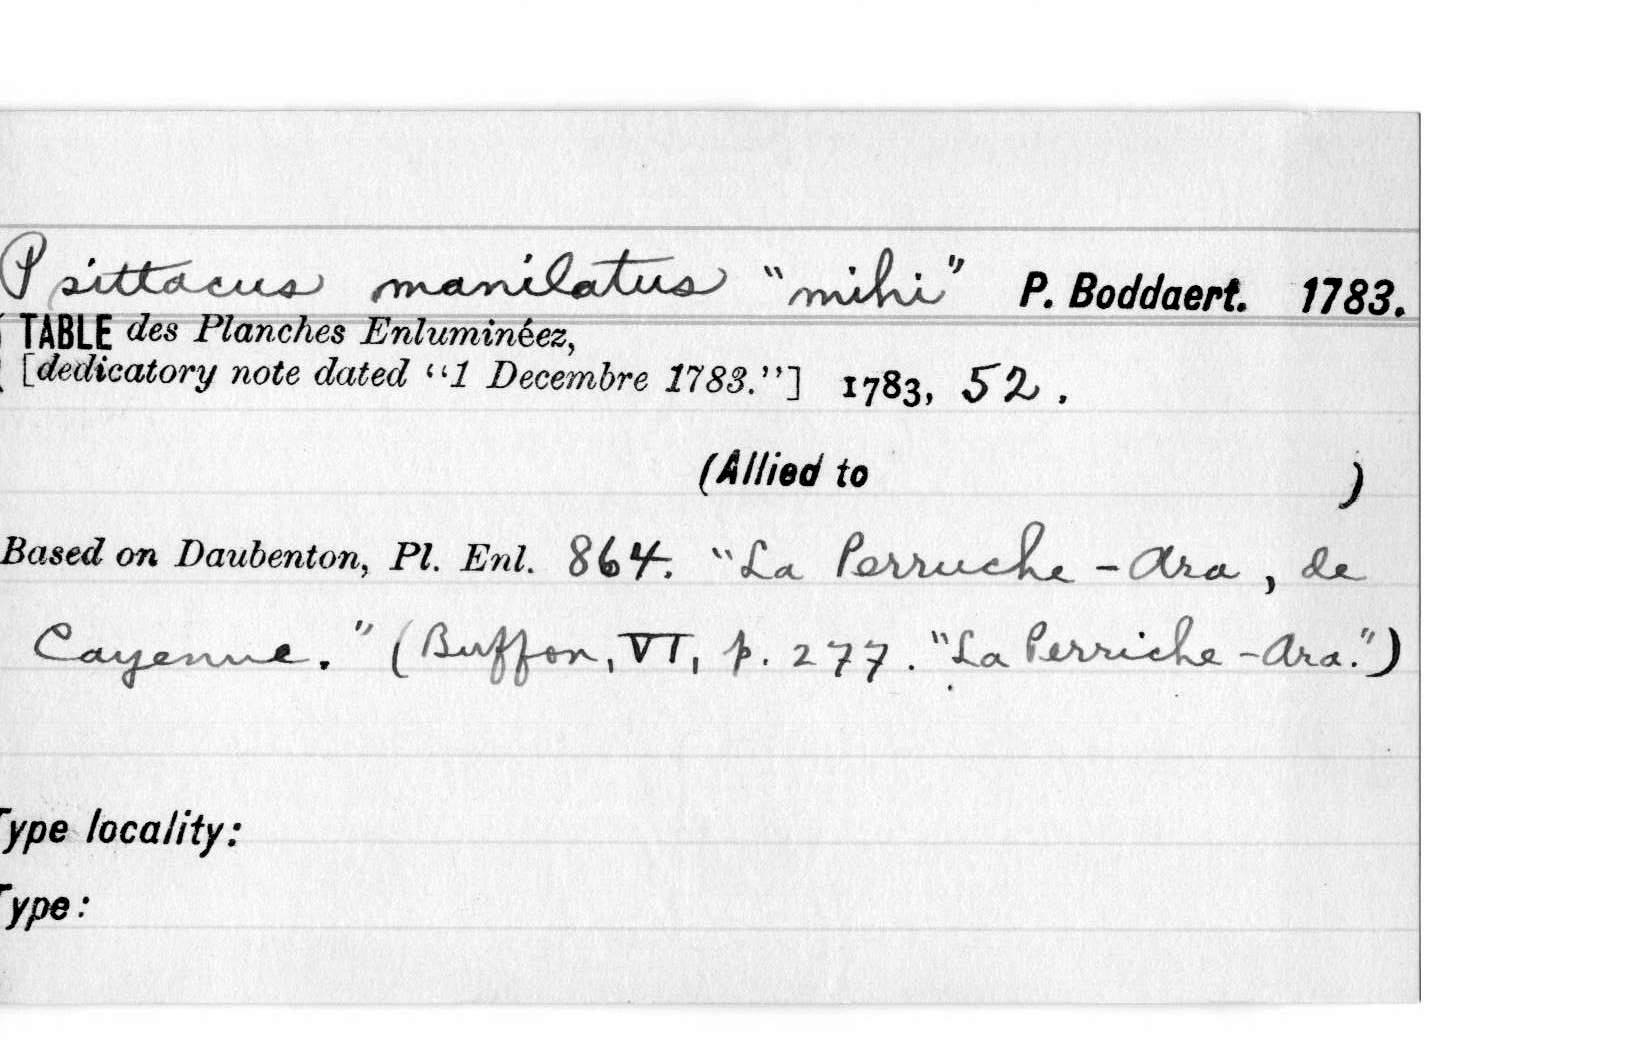 Psittacus manilatus "mihi" P. Boddaert. 1783.
( TABLE des Planches Enluminéez,
( [dedicatory note dated "1 Decembre 1783."] 1783, 52.
(Allied to )
Based on Daubenton, Pl. Enl. 864. "La Perruche-Ara, de
Cayenne." (Buffon, VI, p. 277. "La Perriche-Ara.")
Type locality:
Type: